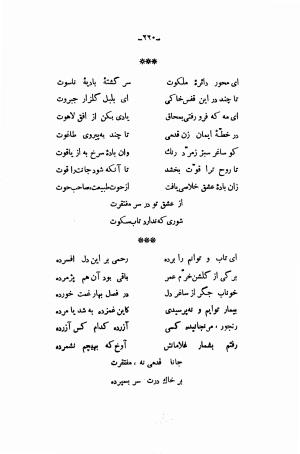 -۲۲۰-
***
ای محور دائرهٔ ملکوت سرگشتهٔ بادیهٔ ناسوت
تا چند در این قفس خاکی ای بلبل گلزار جبروت
ای مه که فرو رفتی بمحاق یادی بکن از افق لاهوت
در خطّهٔ ایمان زن قدمی تا چند به پیروی طاغوت
کو ساغر سبز زمرّد رنگ وان بادهٔ سرخ به از یاقوت
تا روح ترا قوّت بخشد تا آنکه شود جانت را قوت
زان بادهٔ عشق خلاصی یافت از حوت طبیعت، صاحب حوت
از عشق تو در سر مفتقرت
شوری که ندارد تاب سکوت
***
ای تاب و توانم را برده رحمی بر این دل افسرده
برگی از گلشن خرّم عمر باقی بود آن هم پژمرده
خوناب جگر از ساغر دل در فصل بهار غمت خورده
بیمار توایم و نه‌پرسیدی کاین غمزده به شد یا مرده
رنجور، مرنجانید کسی آزرده کدام کس آزرده
رفتم بشمار غلامانش آوخ که بهیچم نشمرده
جانا قدمی نه، مفتقرت
بر خاک درت سر بسپرده